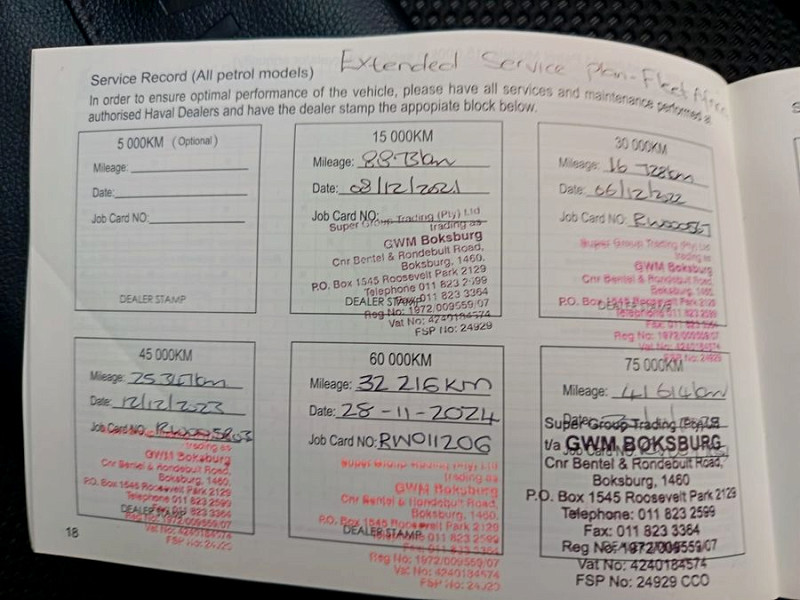 Extended Service Plan - Fleet Africa
Service Record (All petrol models)
In order to ensure optimal performance of the vehicle, please have all services and maintenance performed at
authorised Haval Dealers and have the dealer stamp the appopiate block below.
5 000KM (Optional)
Mileage:
Date:
Job Card NO:
DEALER STAMP
15 000KM
Mileage: 8873km
Date: 08/12/2021
Job Card NO:
Super Group Trading (Pty) Ltd
trading as
GWM Boksburg
Cnr Bentel & Rondebult Road,
Boksburg, 1460.
P.O. Box 1545 Roosevelt Park 2129
Telephone 011 823 2599
DEALER STAMP
Fax: 011 823 3364
Reg No: 1972/009559/07
Vat No: 4240184574
FSP No: 24929
30 000KM
Mileage: 16 728km
Date: 06/12/2022
Job Card NO:
Super Group Trading (Pty) Ltd
trading as
GWM Boksburg
Cnr Bentel & Rondebult Road,
Boksburg, 1460.
P.O. Box 1545 Roosevelt Park 2129
DEALER STAMP
Telephone 011 823 2599
Fax: 011 823 3364
Reg No: 1972/009559/07
Vat No: 4240184574
FSP No: 24929
45 000KM
Mileage: km
Date: 12/12/2023
Job Card NO:
trading as
GWM Boksburg
Cnr Bentel & Rondebult Road,
Boksburg, 1460.
P.O. Box 1545 Roosevelt Park 2129
Telephone 011 823 2599
DEALER STAMP
Reg No: 1972/009559/07
Vat No: 4240184574
FSP No:
60 000KM
Mileage: 32 216KM
Date: 28-11-2024
Job Card NO: RW011206
Super Group Trading (Pty) Ltd
trading as
GWM Boksburg
Cnr Bentel & Rondebult Road,
Boksburg, 1460.
P.O. Box 1545 Roosevelt Park 2129
DEALER STAMP
Telephone 011 823 2599
Fax: 011 823 3364
Reg No: 1972/009559/07
Vat No: 4240184574
FSP No:
75 000KM
Mileage: 41 614km
Date:
Super Group Trading (Pty) Ltd
t/a GWM BOKSBURG
Job Card NO:
Cnr Bentel & Rondebult Road,
Boksburg, 1460
P.O. Box 1545 Roosevelt Park 2129
Telephone: 011 823 2599
Fax: 011 823 3364
Reg No: 1972/009559/07
Vat No: 4240184574
FSP No: 24929 CCO
18